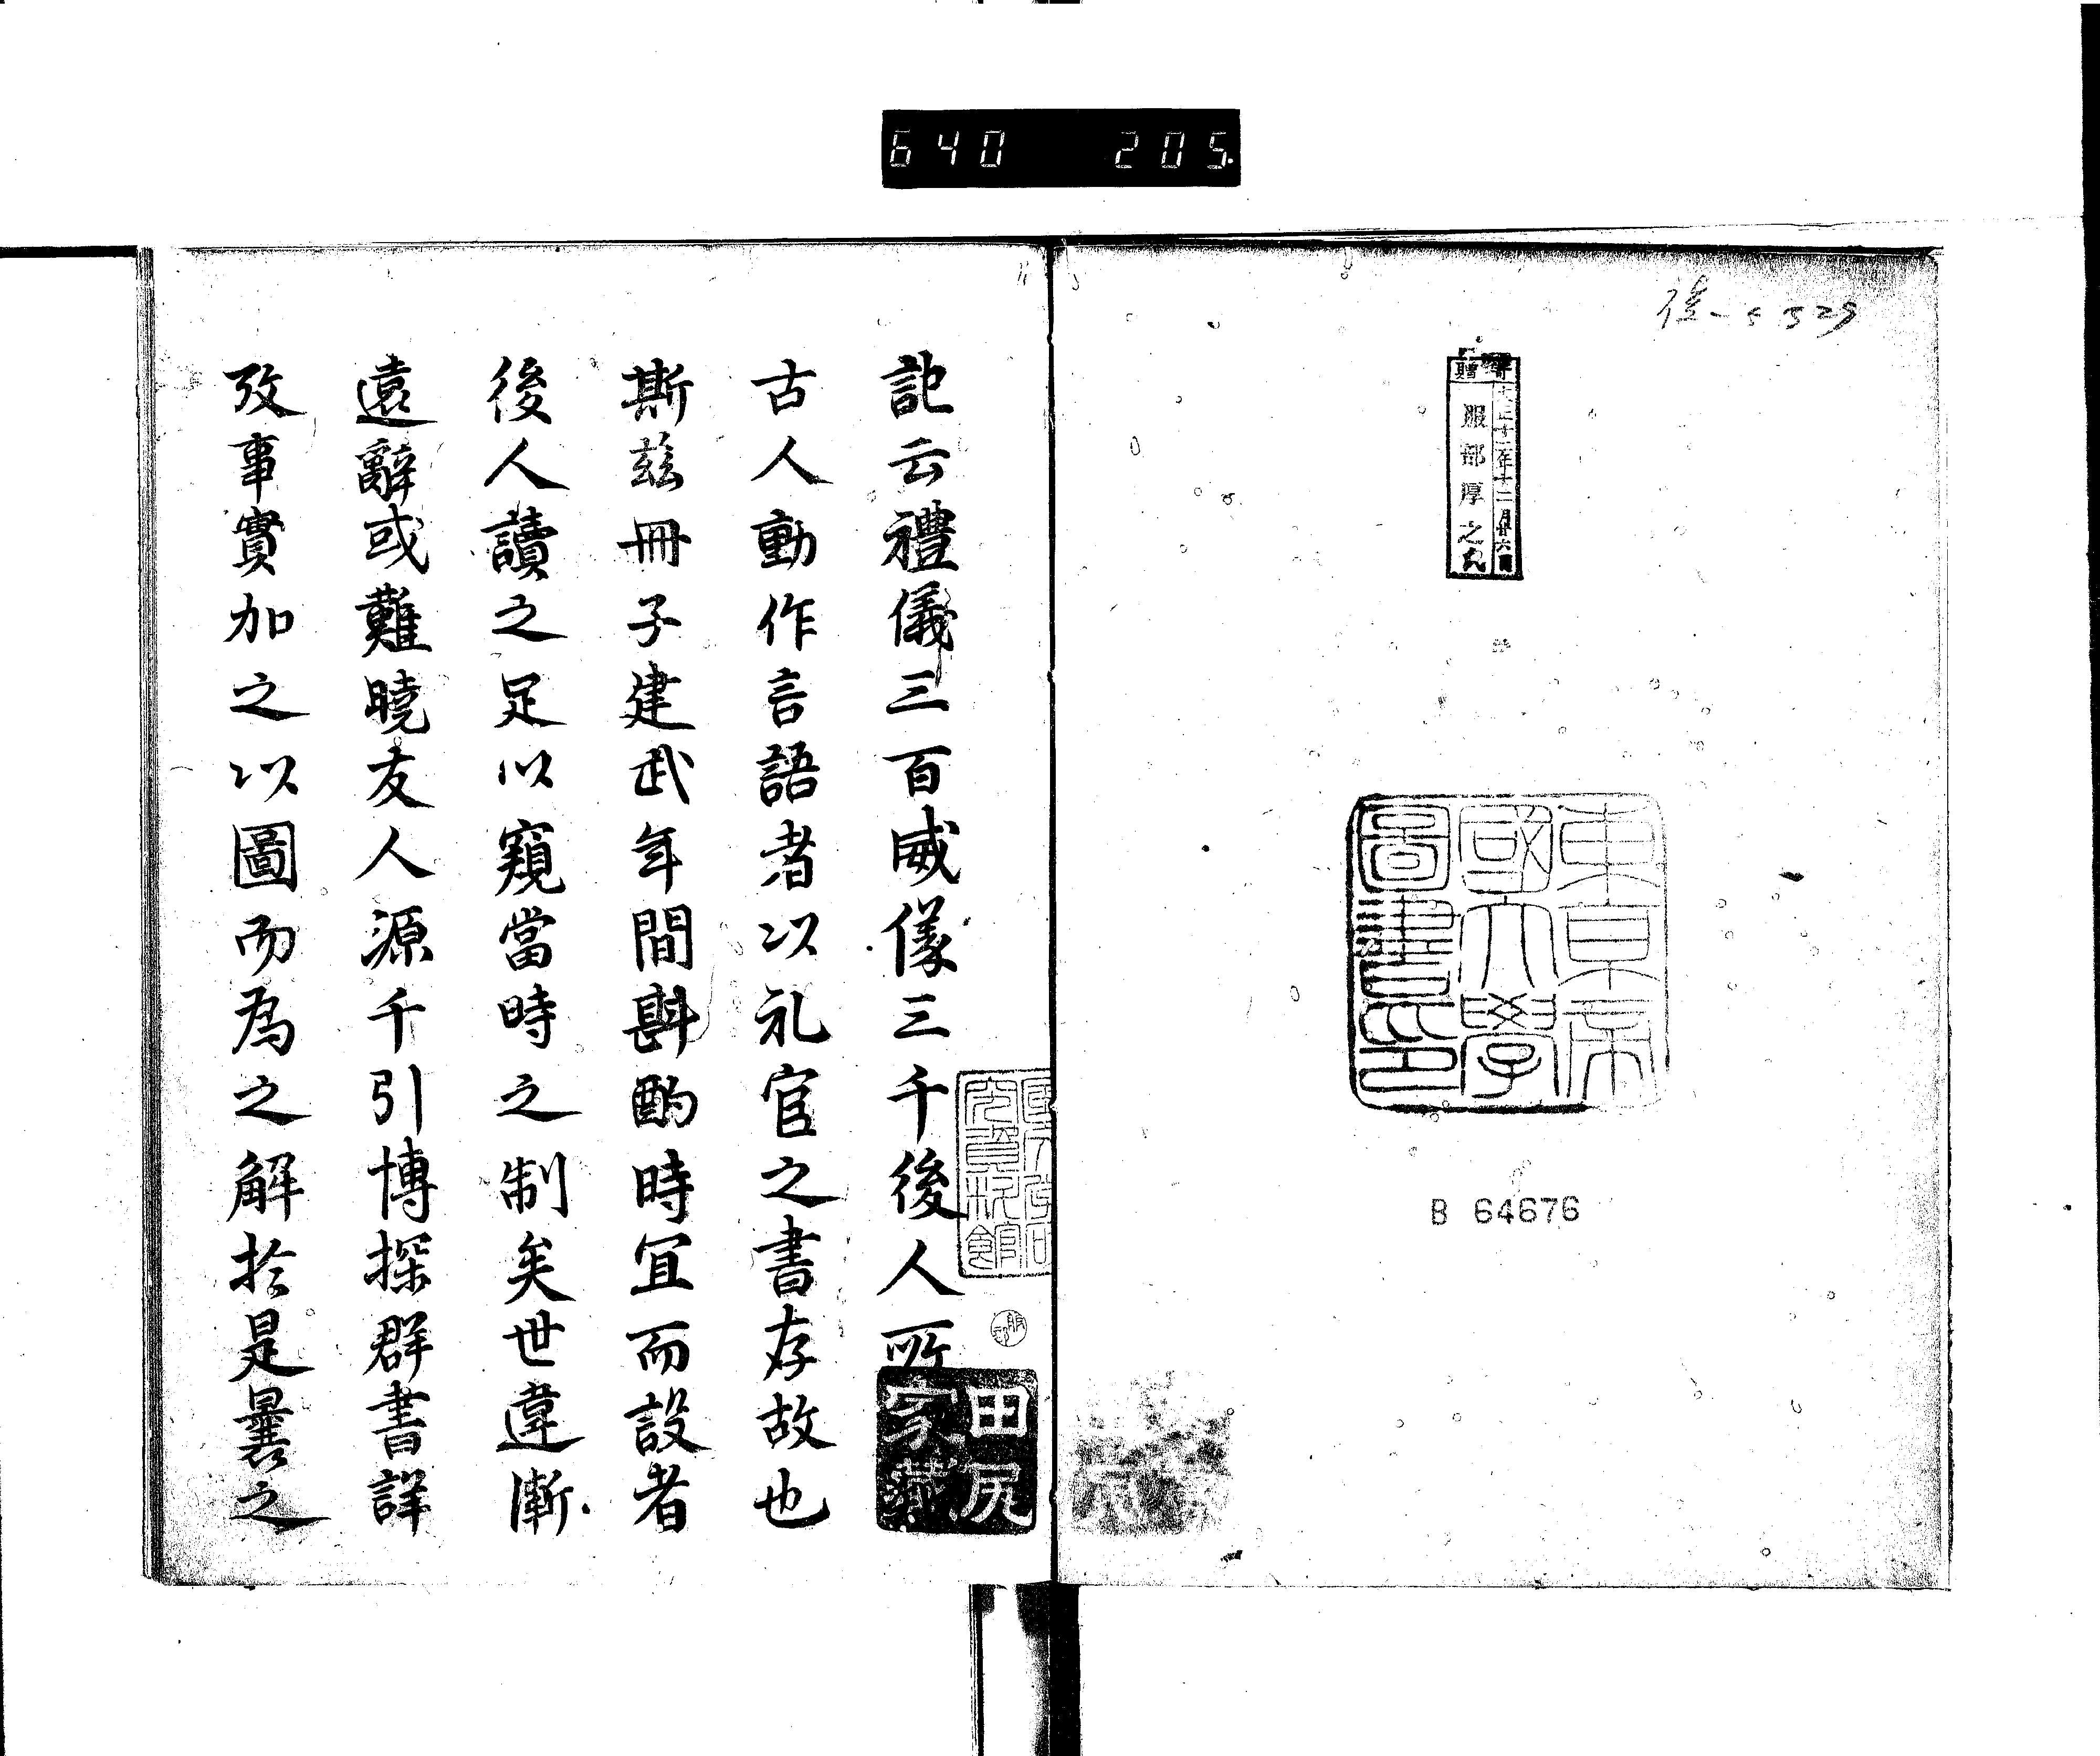 640 205
寄贈
大正十二年十二月廿六日
服部厚之氏
東京帝
國大學
圖書印
B 64676
記云禮儀三百威儀三千後人所
古人動作言語者以礼官之書存故也
斯茲冊子建武年間斟酌時宜而設者
後人讀之足以窺當時之制矣世違漸
遠辭或難曉友人源千引博探群書詳
攷事實加之以圖而為之解於是曩之
服部
田尻
家藏